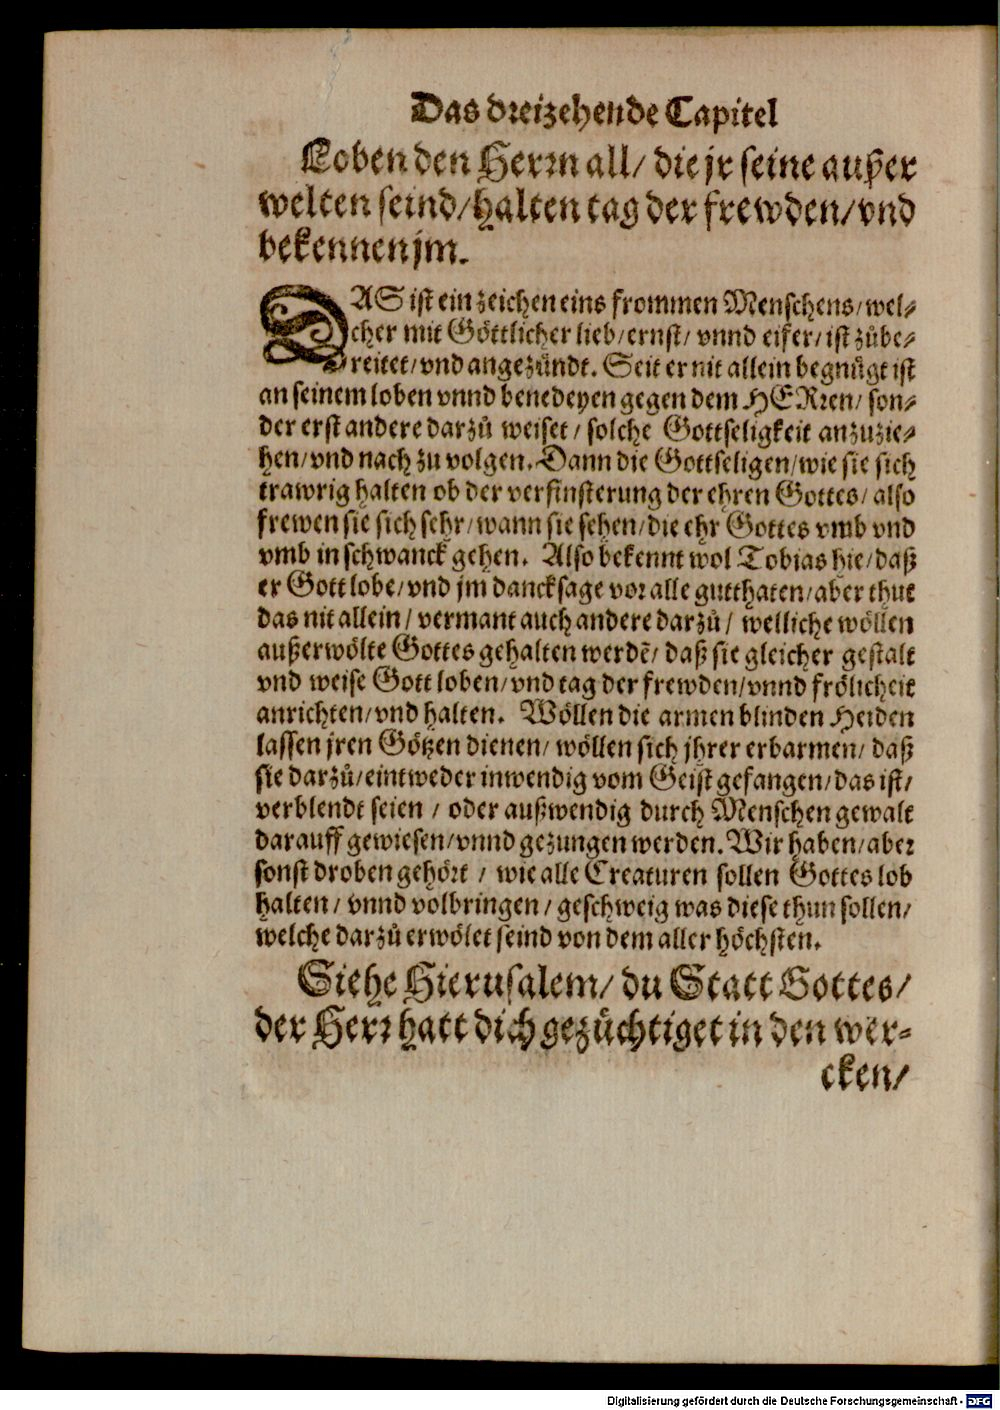 Das dreizehende Capitel
Loben den Herrn all/ die jr seine außer
welten seind/halten tag der frewden/vnd
bekennen jm.
DAS ist ein zeichen eins frommen Menschens/wel⸗
cher mit Göttlicher lieb/ernst/ vnnd eifer/ist zůbe⸗
reitet/vnd angezündt. Seit er nit allein begnůgt ist
an seinem loben vnnd benedeyen gegen dem HERren/ son⸗
der erst andere darzů weiset/ solche Gottseligkeit anzuzie⸗
hen/vnd nach zu volgen. Dann die Gottseligen/wie sie sich
trawrig halten ob der verfinsterung der ehren Gottes/ also
frewen sie sich sehr/wann sie sehen/die ehr Gottes vmb vnd
vmb in schwanck gehen. Also bekennt wol Tobias hie/daß
er Gott lobe/vnd jm dancksage vor alle gutthaten/aber thut
das nit allein/ vermant auch andere darzů/ welliche wöllen
außerwölte Gottes gehalten werdẽ/ daß sie gleicher gestalt
vnd weise Gott loben/vnd tag der frewden/vnnd frölicheit
anrichten/vnd halten. Wöllen die armen blinden Heiden
lassen jren Götzen dienen/ wöllen sich jhrer erbarmen/ daß
sie darzů/eintweder inwendig vom Geist gefangen/das ist/
verblendt seien / oder außwendig durch Menschen gewalt
darauff gewiesen/vnnd gezungen werden. Wir haben/aber
sonst droben gehört / wie alle Creaturen sollen Gottes lob
halten/ vnnd volbringen/ geschweig was diese thun sollen/
welche darzů erwölet seind von dem aller höchsten.
Siehe Hierusalem/ du Statt Gottes/
der Herr hatt dich gezüchtiget in den wer-
cken/
Digitalisierung gefördert durch die Deutsche Forschungsgemeinschaft - DFG